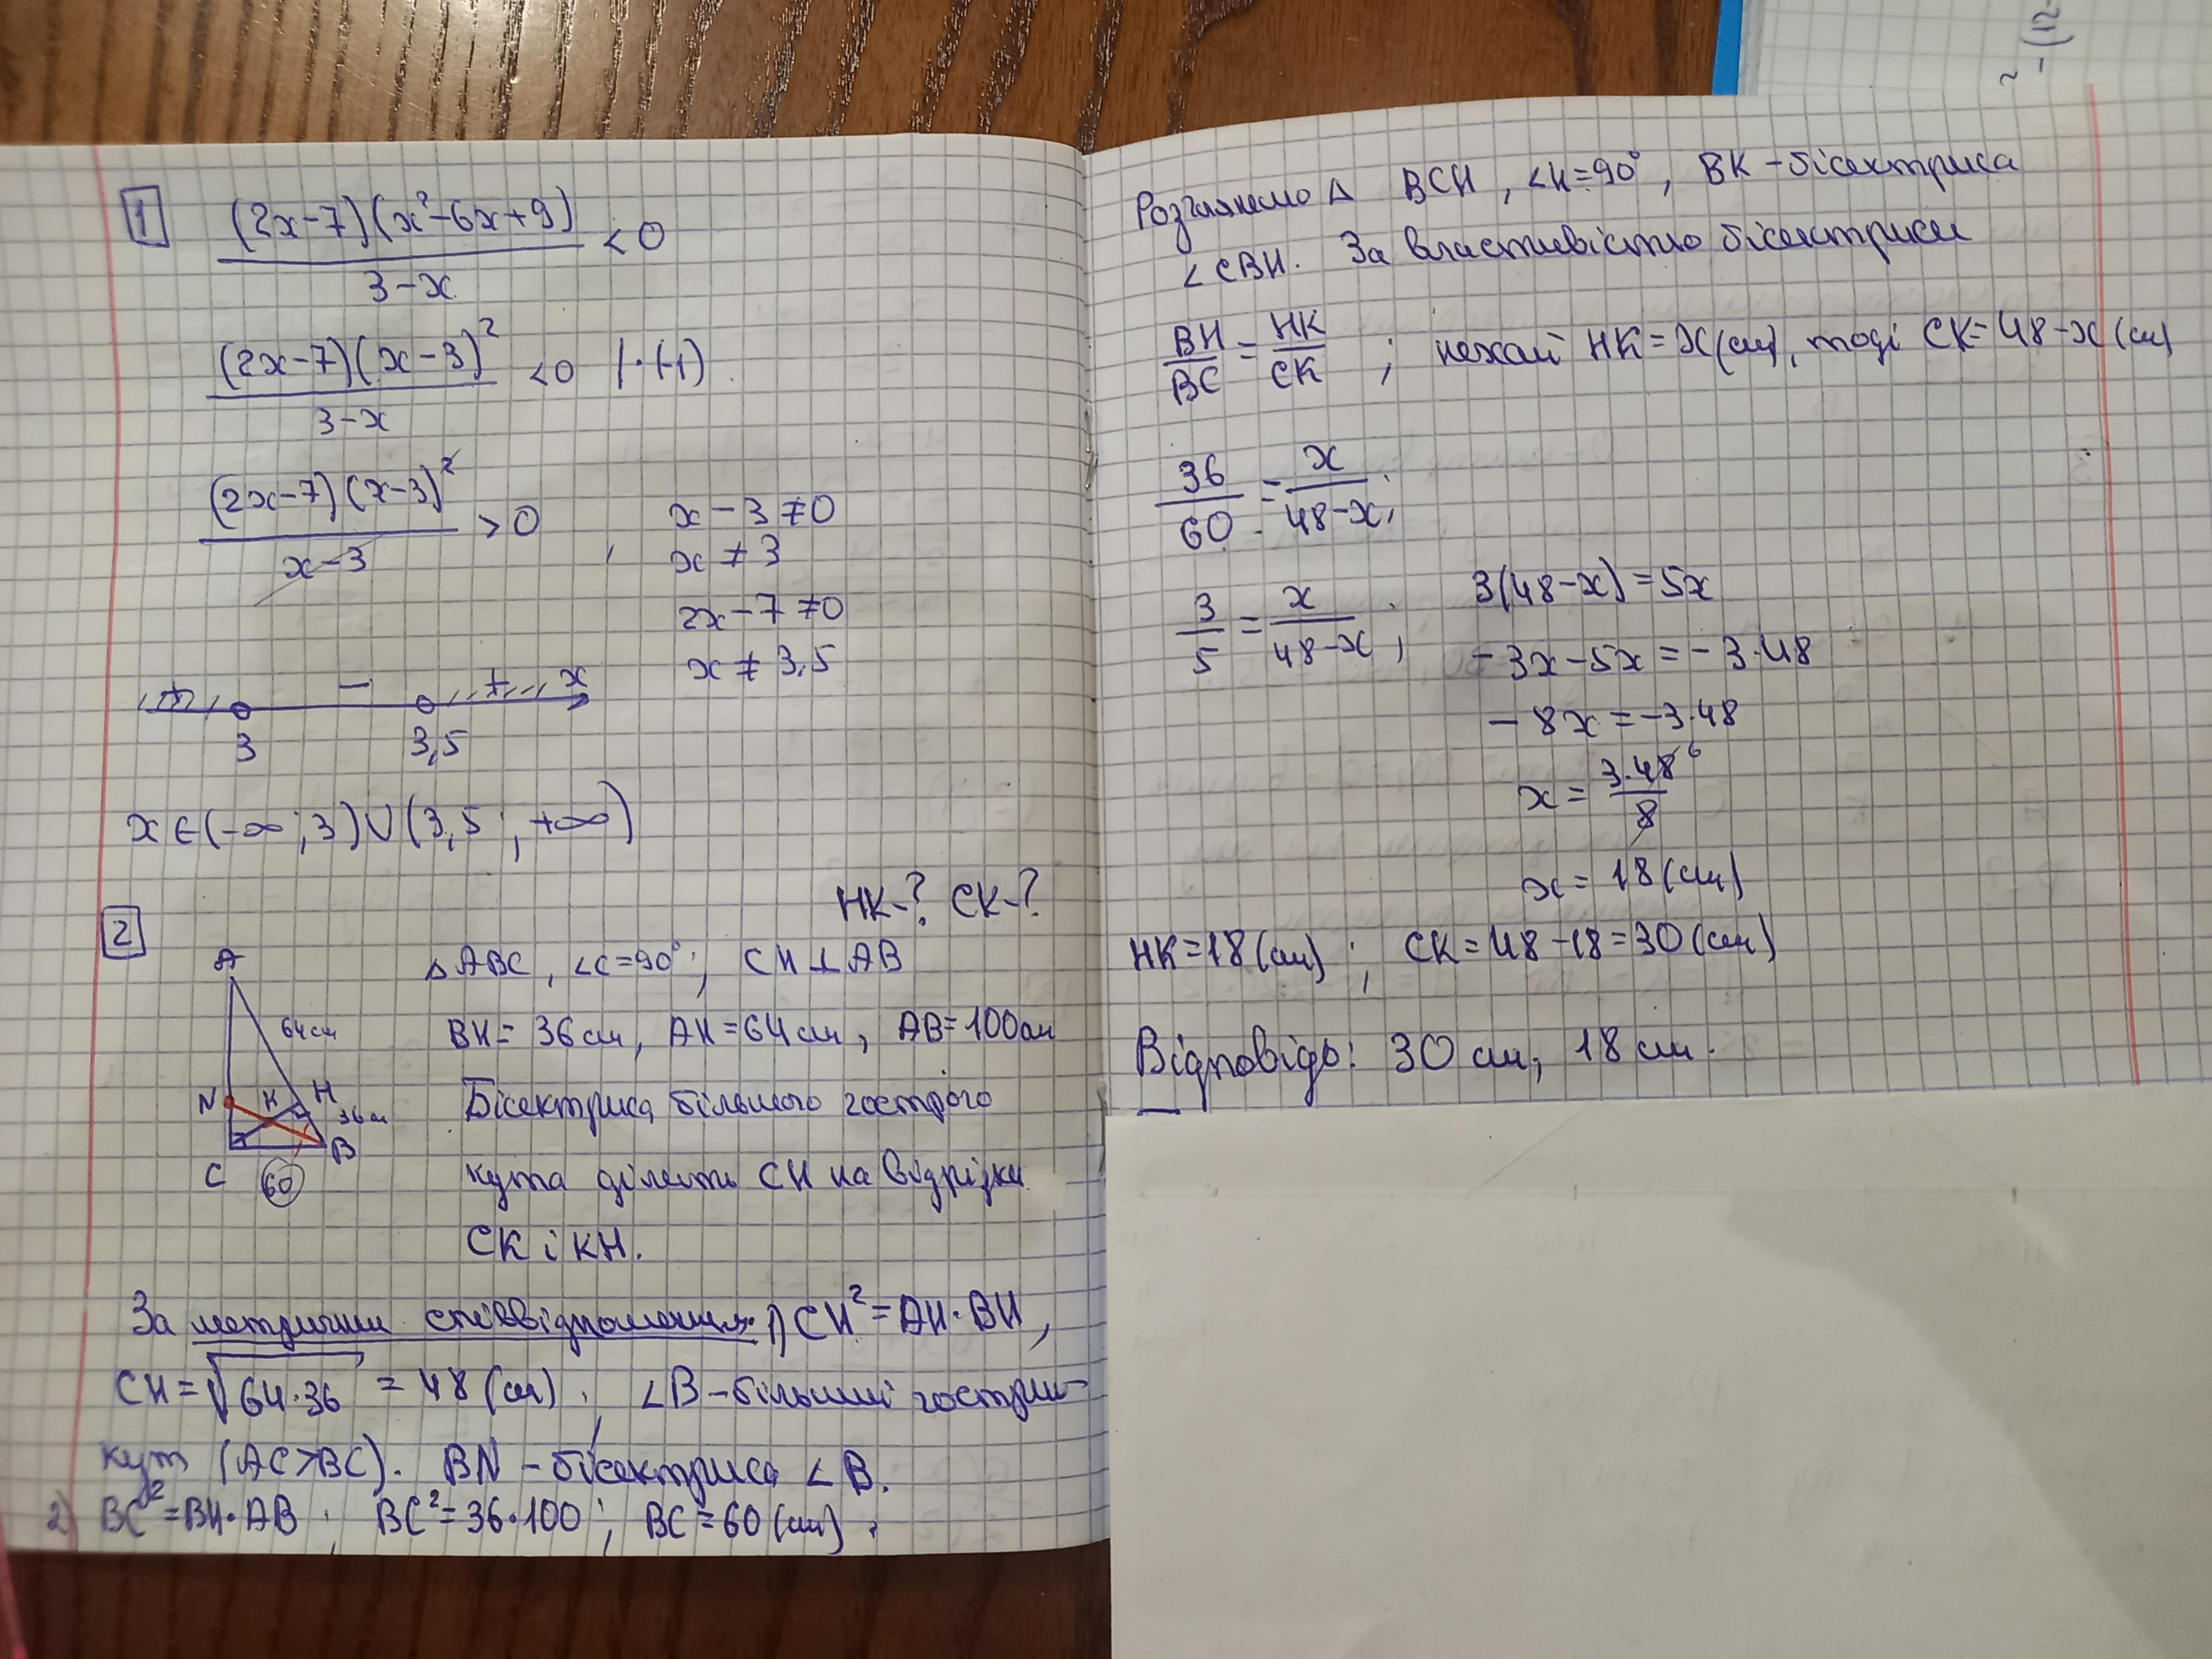 1
(2x-7)(x²-6x+9)/(3-x) < 0
(2x-7)(x-3)²/(3-x) < 0 |·(-1)
(2x-7)(x-3)²/(x-3) > 0 ,
x-3≠0
x≠3
2x-7≠0
x≠3,5
+ - + x
3 3,5
x∈(-∞; 3)∪(3,5; +∞)
2
HK-? CK-?
A
64см
N K H
36см
C 60 B
△ABC, ∠C=90°; CH⊥AB
BH=36см, AH=64см, AB=100см
Бісектриса більшого гострого
кута ділить CH на відрізки
CK і KH.
За метричними співвідношеннями: 1) CH²=AH·BH,
CH=√64·36 = 48 (см); ∠B-більший гострий
кут (AC>BC). BN-бісектриса ∠B.
2) BC²=BH·AB; BC²=36·100; BC=60(см);
Розглянемо △ BCH, ∠H=90°, BK-бісектриса
∠CBH. За властивістю бісектриси
BH/BC = HK/CK ; нехай HK=x(см), тоді CK=48-x(см)
36/60 = x/(48-x);
3/5 = x/(48-x);
3(48-x)=5x
-3x-5x=-3·48
-8x=-3·48
x= 3·48 6/8
x=18(см)
HK=18(см); CK=48-18=30(см)
Відповідь: 30 см, 18 см.